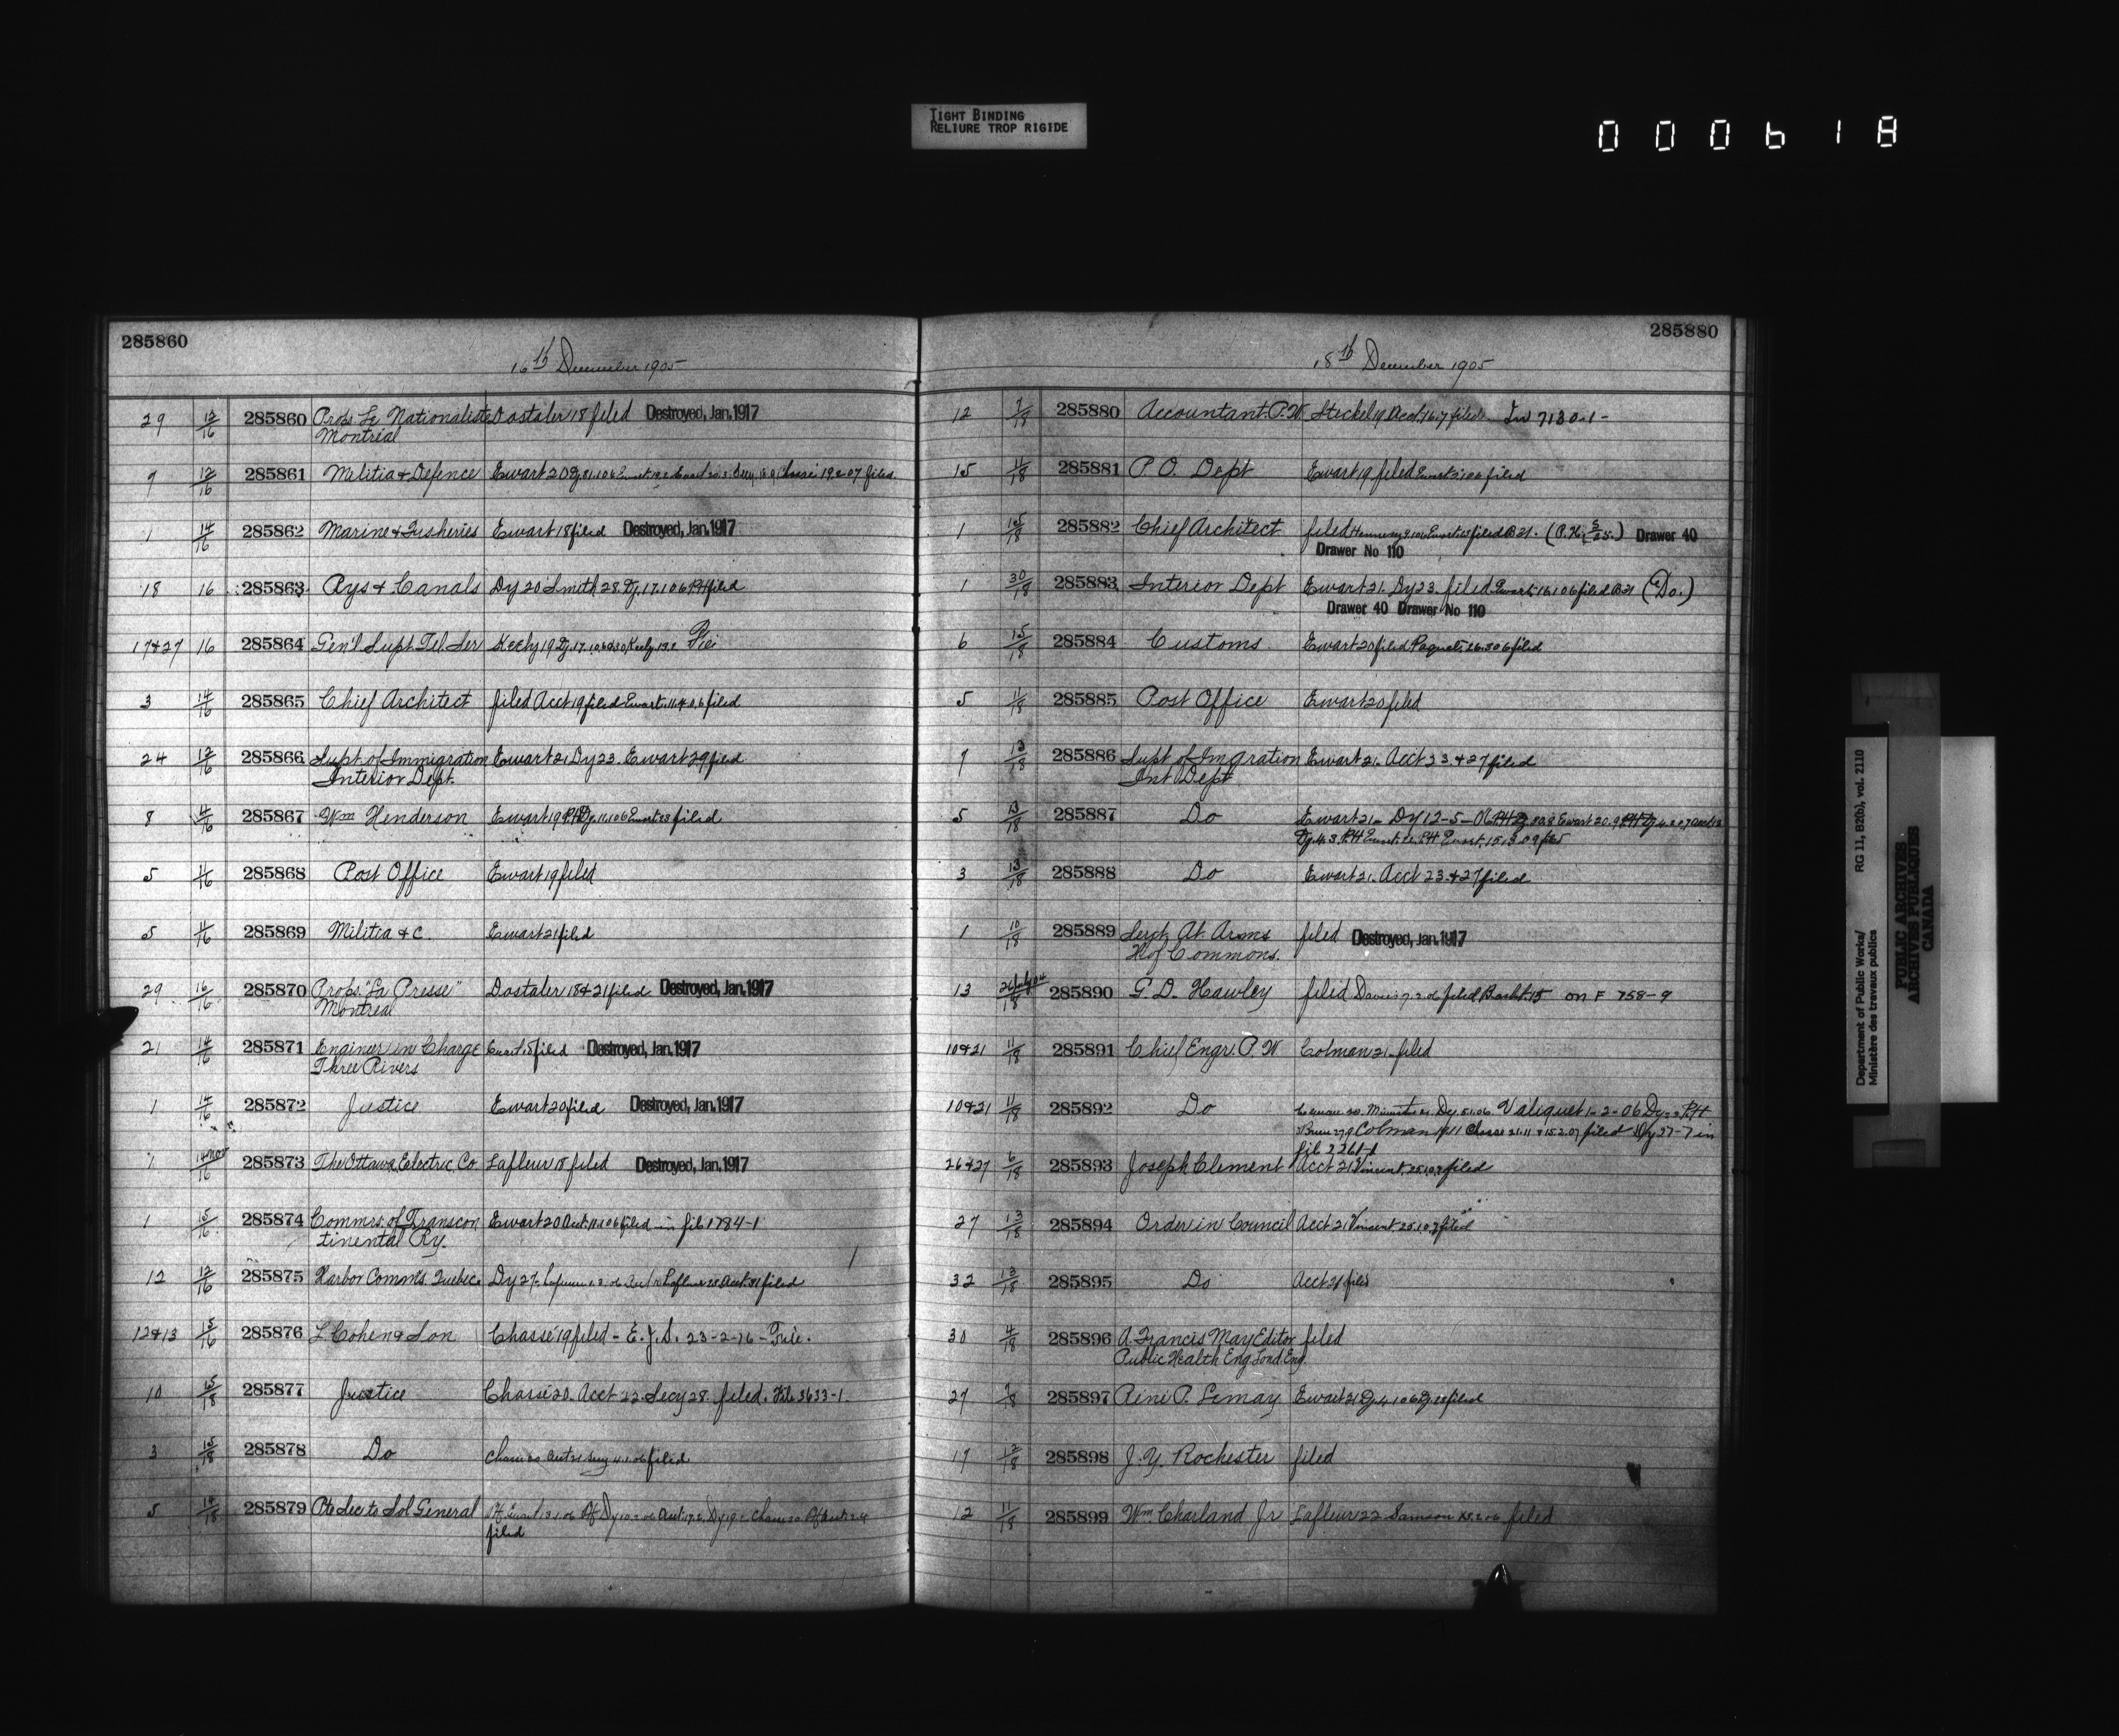 TIGHT BINDING
RELIURE TROP RIGIDE
000618
285860
16th December 1905
29 12/16 285860 Props. Le Nationaliste Dostaler 18 filed Destroyed, Jan. 1917
Montreal
9 12/16 285861 Militia & Defence Ewart 20 19.2.07 filed.
1 14/16 285862 Marine & Fisheries Ewart 18 filed Destroyed, Jan. 1917
18 16 285863 Rys & Canals Dy 20 Smith 28. Dy. 17.1.06 PH filed
17&27 16 285864 Gen'l Supt Tel. Ser Keely 19 Dy. 17.1.06
3 14/16 285865 Chief Architect filed Acct 19 filed Ewart. 11.4.06 filed
24 12/16 285866 Supt of Immigration Ewart 21 Dy 23. Ewart 29 filed
Interior Dept.
8 14/16 285867 Wm Henderson Ewart 19 PH Dy. 11.1.06 Ewart 23 filed
5 14/16 285868 Post Office Ewart 19 filed
5 14/16 285869 Militia & C. Ewart 21 filed
29 16/16 285870 Props. "La Presse" Dostaler 18 & 21 filed Destroyed, Jan. 1917
Montreal
21 14/16 285871 Engineer in Charge Ewart 18 filed Destroyed, Jan. 1917
Three Rivers
1 14/16 285872 Justice Ewart 20 filed Destroyed, Jan. 1917
14 Nov/16 285873 The Ottawa Eelectric Co Lafleur 18 filed Destroyed, Jan. 1917
1 15/16 285874 Commrs. of Transcon Ewart 20 Acct. 11.1.06 filed in file 1784-1
tinental Ry.
12 12/16 285875 Harbor Comm's. Quebec Dy 27. Lafleur Acct. 31 filed
12&13 15/16 285876 L Cohen & Son Chassé 19 filed - E.J.S. 23-2-16 - File.
10 15/18 285877 Justice Chassé 20. Acct 22 Secy 28. filed. File 3633-1.
3 15/18 285878 Do Chassé 20 Acct 21 Secy 4.1.06 filed
5 14/18 285879 Pte Sec to Sol General
filed
285880
18th December 1905
12 7/18 285880 Accountant. P.W. Steckel 19 Acct. 16.7 filed In 7130-1-
15 11/18 285881 P.O. Dept Ewart 19 filed Ewart 3.1.06 filed
1 15/18 285882 Chief Architect filed Hennessy 9.1.06 Ewart 15 filed B 21. (P.H. 5/25.) Drawer 40
Drawer No 110
1 30/18 285883 Interior Dept Ewart 21. Dy 23. filed Ewart 16.1.06 filed B 21 (Do.)
Drawer 40 Drawer No 110
6 15/18 285884 Customs Ewart 20 filed Paquet. 26.3.06 filed
5 11/18 285885 Post Office Ewart 20 filed
9 13/18 285886 Supt of Imgration Ewart 21. Acct 23. & 27 filed
Int Dept
5 13/18 285887 Do Ewart 21- Dy 12-5-06 PH Ewart 20.9
Dy. 4.3. PH Ewart PH Ewart. 15.3.09
3 13/18 285888 Do Ewart 21. Acct 23. & 27 filed
1 10/18 285889 Sergt. At. Arms filed Destroyed, Jan. 1917
H of Commons.
13 26 July 04/18 285890 G.D. Hawley filed Davis 9.2.06 filed on F 758-9
10&21 11/18 285891 Chief Engr. P.W Colman 21. filed
10&21 11/18 285892 Do Colman 20. Minister 21. Dy. 5.1.06. Valiquet 1-2-06 Dy - PH
Colman 19/11 Chassé 21.11 & 15.2.07 filed Dy 27-7 in
file 2261-1
26&27 6/18 285893 Joseph Clement Acct 21 Vincent. 25.10.7 filed
27 13/18 285894 Order in Council Acct 21 Vincent. 25.10.7 filed
32 13/18 285895 Do Acct 21 filed
30 4/18 285896 A. Francis May Editor filed
Public Health Eng. Lond Eng.
27 285897 Réné P. Lemay Ewart 21 Dy. 4.1.06 Dy. 18 filed
17 12/18 285898 J.Y. Rochester filed
12 11/18 285899 Wm. Charland Jr Lafleur 22 Samson 15.2.06 filed
Department of Public Works/ RG 11, B2(b), vol. 2110
Ministère des travaux publics
PUBLIC ARCHIVES
ARCHIVES PUBLIQUES
CANADA